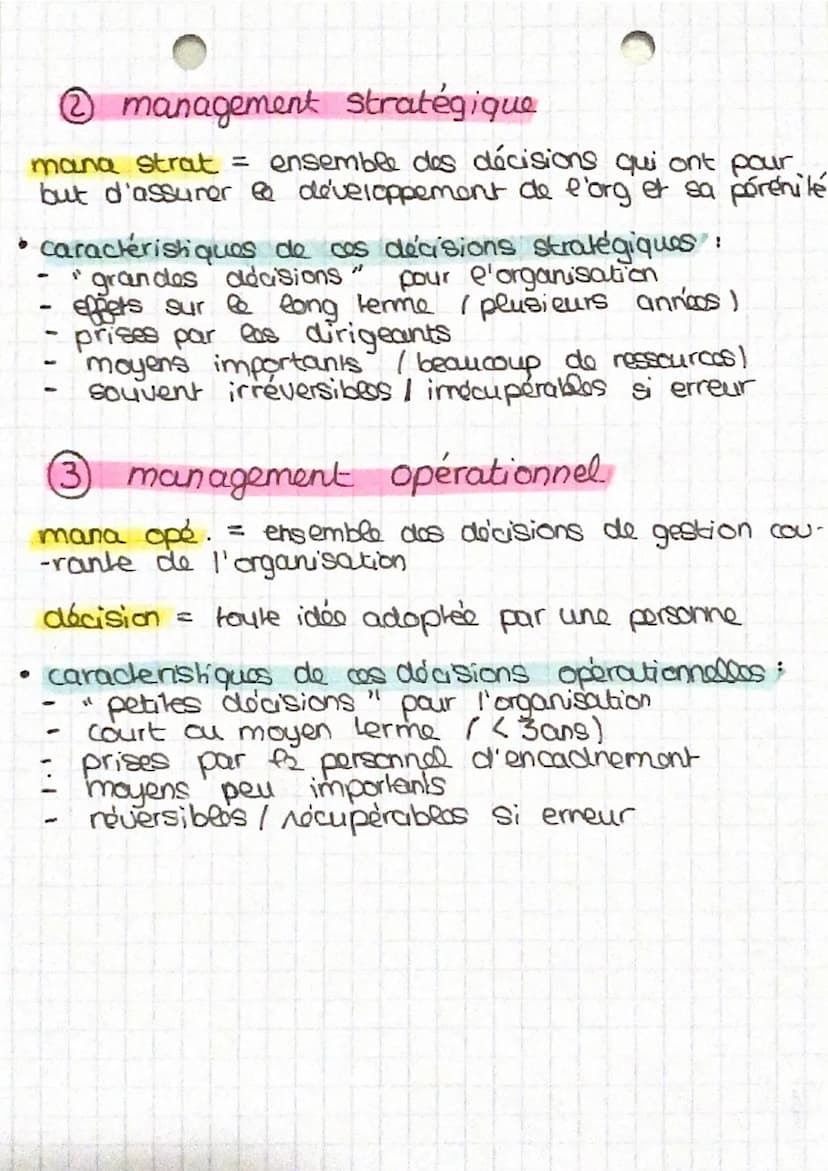 ② management stratégique
mana strat = ensemble des décisions qui ont pour
but d'assurer le développement de l'org et sa pérénité
• caractéristiques de ces décisions stratégiques :
- "grandes décisions" pour l'organisation
- effets sur le long terme (plusieurs années)
- prises par les dirigeants
- moyens importants (beaucoup de ressources)
- souvent irréversibles / irrécupérables si erreur
③ management opérationnel
mana opé. = ensemble des décisions de gestion cou-
-rante de l'organisation
décision = toute idée adoptée par une personne
• caracteristiques de ces décisions opérationnelles :
- "petites décisions" pour l'organisation
- court ou moyen terme (< 3ans)
- prises par le personnel d'encadrement
- moyens peu importants
- réversibles / récupérables si erreur